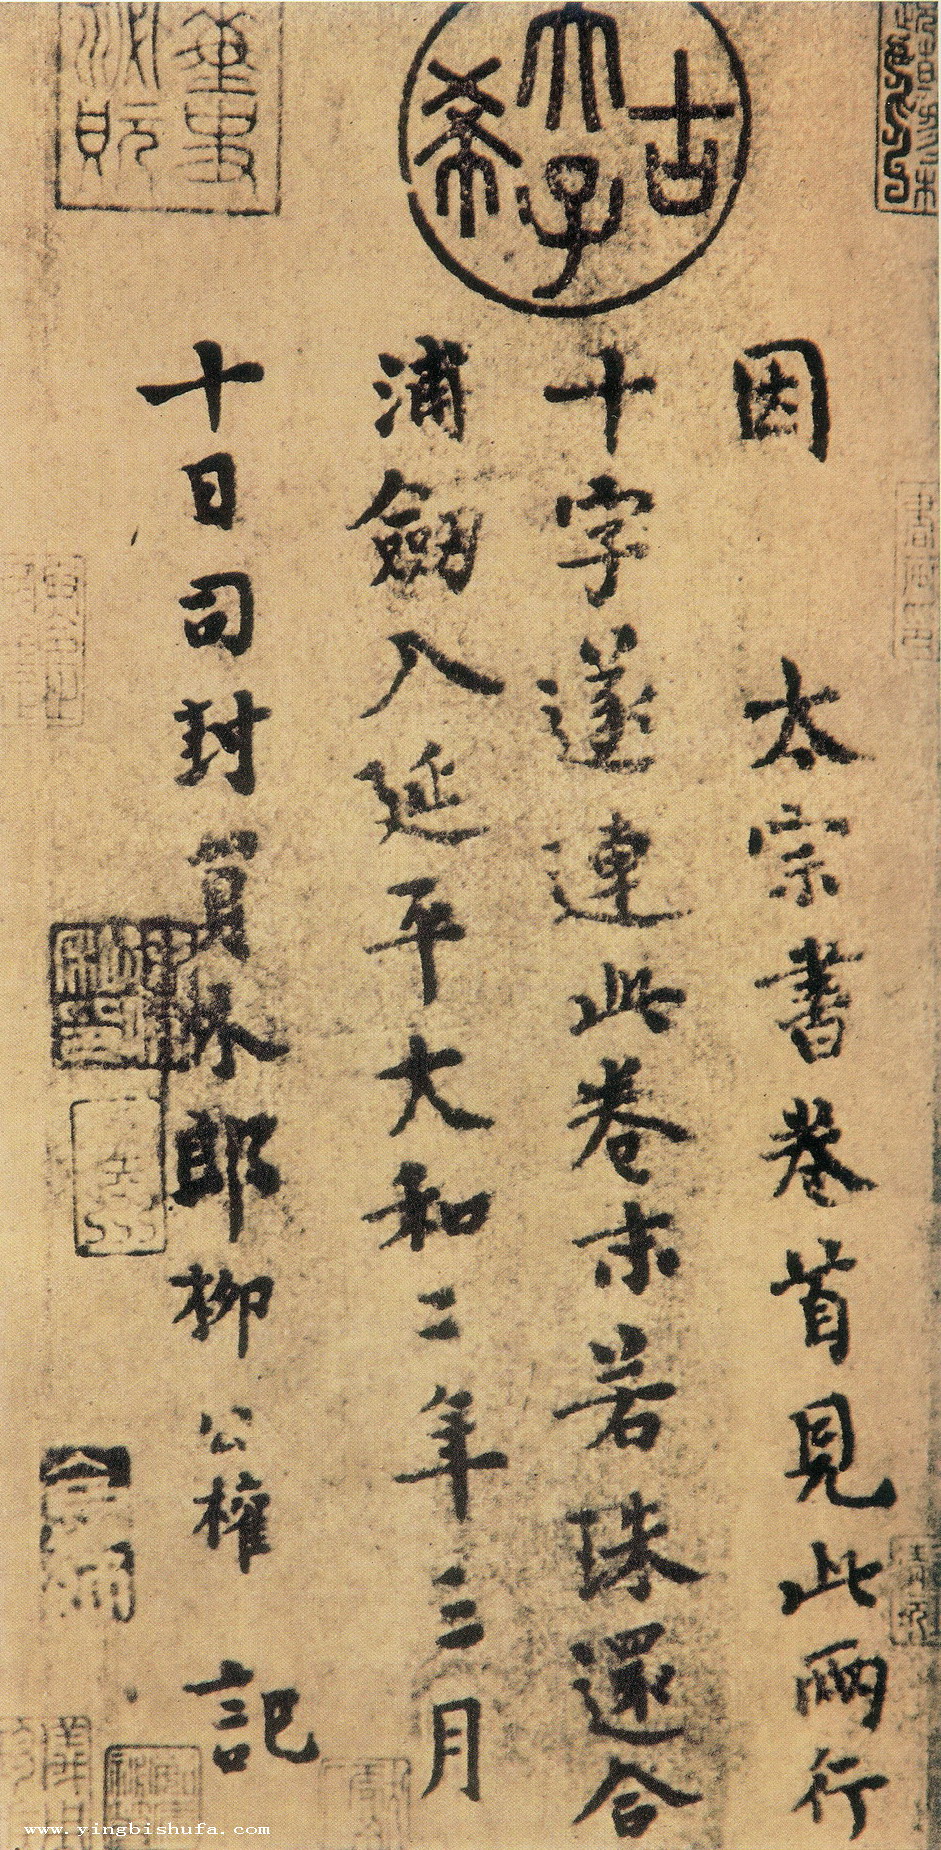 因 太宗書卷首見此兩行
十字遂連此卷末若珠還合
浦劒入延平大和二年三月
十日司封員外郎柳公權 記
古
天子
希
www.yingbishufa.com